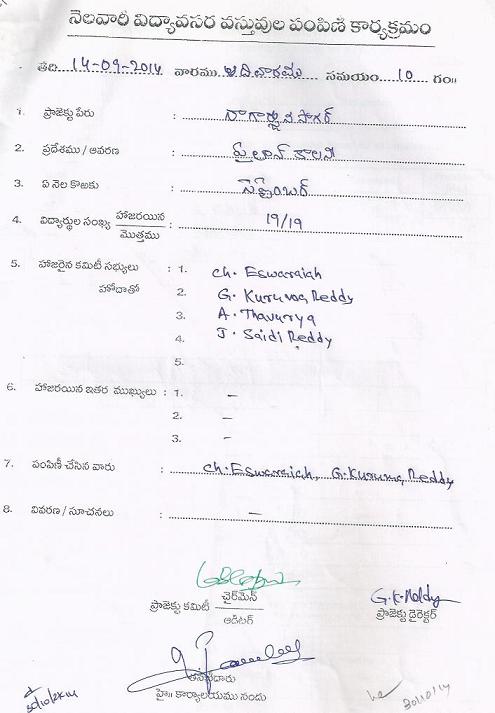 నెలవారీ విద్యావసర వస్తువుల పంపిణీ కార్యక్రమం
తేది 14-09-2014 వారము ఆదివారము సమయం 10 గం॥
1. ప్రాజెక్టు పేరు : నాగార్జున సాగర్
2. ప్రదేశము / ఆవరణ : పైలాన్ కాలనీ
3. ఏ నెల కొఱకు : సెప్టెంబర్
4. విద్యార్థుల సంఖ్య హాజరయిన / మొత్తము : 19/19
5. హాజరైన కమిటీ సభ్యులు : 1. Ch. Eswaraiah
హోదాతో 2. G. Kuruva Reddy
3. A. Thavurya
4. J. Saidi Reddy
5.
6. హాజరయిన ఇతర ముఖ్యులు : 1. –
2. –
3. –
7. పంపిణీ చేసిన వారు : Ch. Eswaraiah, G. Kuruva Reddy
8. వివరణ / సూచనలు : –
ప్రాజెక్టు కమిటీ చైర్‌మెన్ / ఆడిటర్
G.K. Reddy
ప్రాజెక్టు డైరెక్టర్
అసిస్టెదారు
హై॥ కార్యాలయము నందు
30/10/14